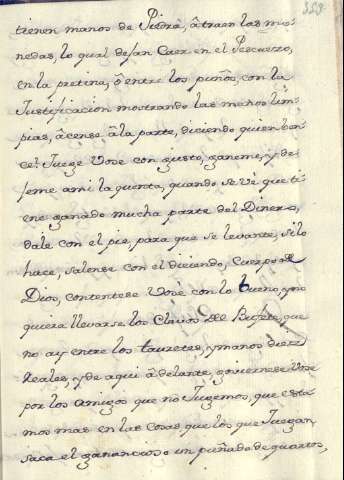 tienen manos de Piedra, âtraen las mo-
nedas, lo qual dejan Caer en el Pescuezo,
en la pretina, ô entre los puños, con la
Justificacion mostrando las manos lim-
pias, âcense âla parte, diciendo quien
Juege Vosé con gusto, ganeme, y de-
jeme ami la quenta, quando se vé que ti-
ene ganado mucha parte del Dinero,
dale con el pie, para que se levante, si lo
hace, salense con el diciendo, Cuerpo de
Dios, contentese Vosé con lo bueno, y no
quiera llevarse los Clavos del Bufete, que
no ay entre los tauretes, y manos diez
Reales, y de aqui âdelante, goviernese Vosé
por los amigos que no Jugemos, que esta-
mos mas en las cosas que los que Juegan,
saca el ganancioso un puñado de quartos,